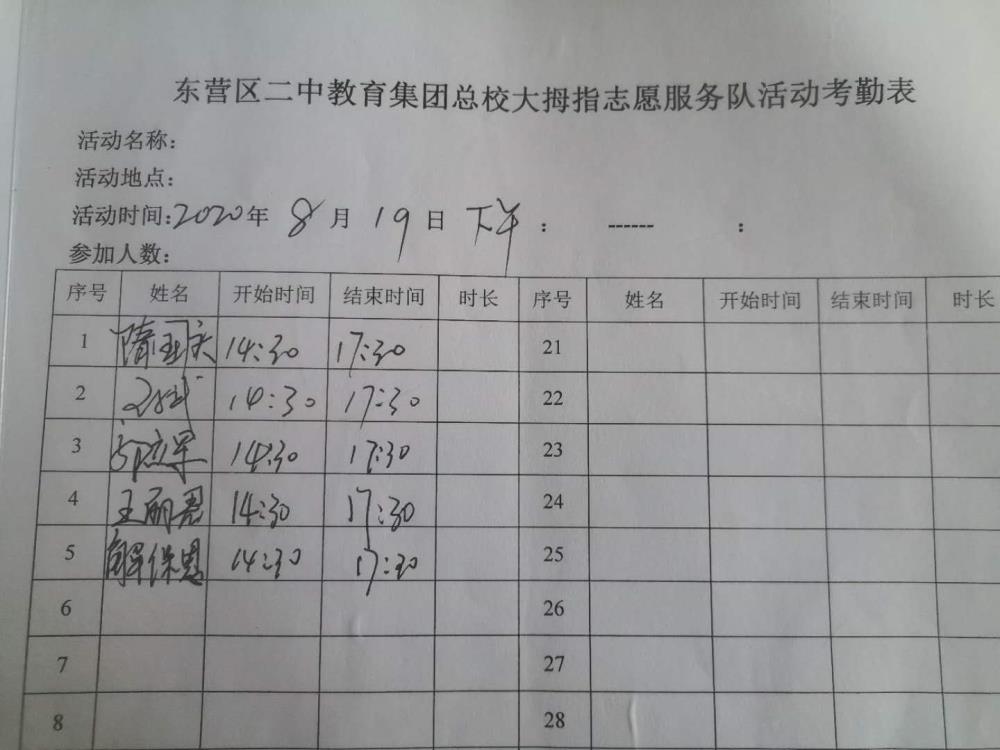 东营区二中教育集团总校大拇指志愿服务队活动考勤表
活动名称:
活动地点:
活动时间:2020年 8月 19日 下午 : ------ :
参加人数:
序号 姓名 开始时间 结束时间 时长 序号 姓名 开始时间 结束时间 时长
1 14:30 17:30 21
2 14:30 17:30 22
3 14:30 17:30 23
4 王丽君 14:30 17:30 24
5 解保恩 14:30 17:30 25
6 26
7 27
8 28